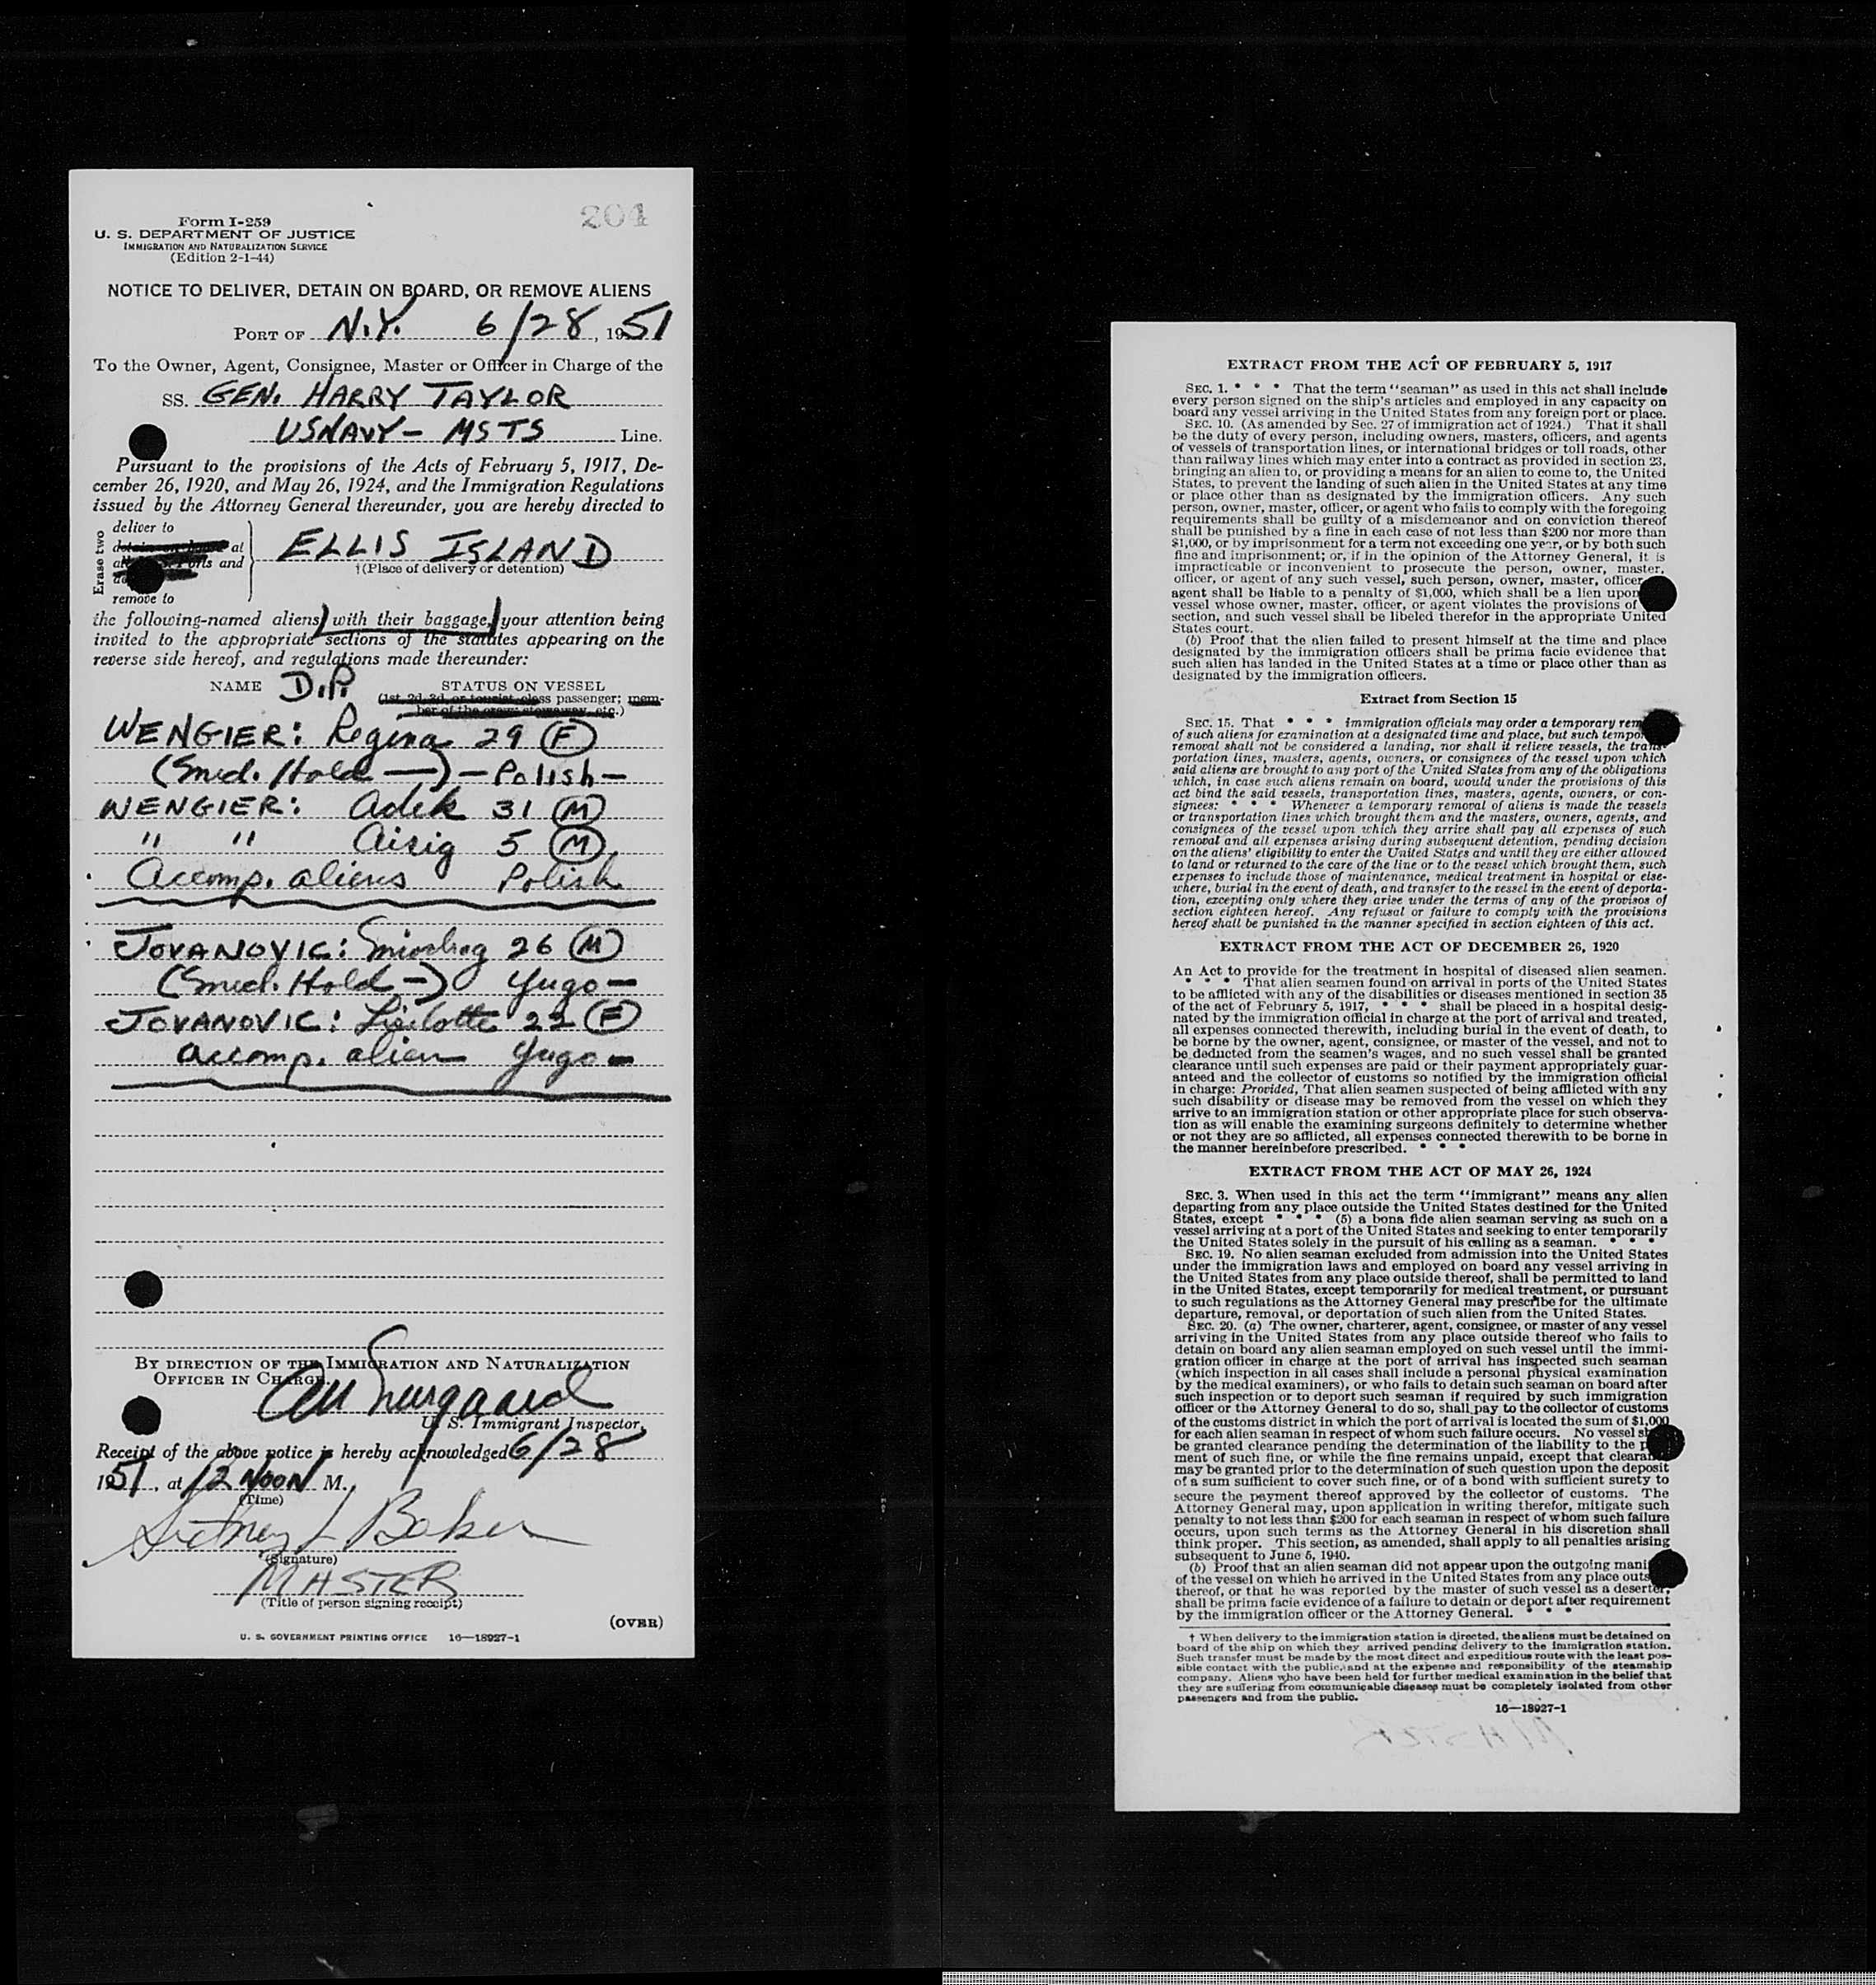 204
Form I-259
U. S. DEPARTMENT OF JUSTICE
IMMIGRATION AND NATURALIZATION SERVICE
(Edition 2-1-44)
NOTICE TO DELIVER, DETAIN ON BOARD, OR REMOVE ALIENS
PORT OF N.Y. 6/28, 1951
To the Owner, Agent, Consignee, Master or Officer in Charge of the
SS. GEN. HARRY TAYLOR
USNAVY - MSTS Line.
Pursuant to the provisions of the Acts of February 5, 1917, De-
cember 26, 1920, and May 26, 1924, and the Immigration Regulations
issued by the Attorney General thereunder, you are hereby directed to
Erase two
deliver to
at
and
remove to
ELLIS ISLAND
†(Place of delivery or detention)
the following-named aliens, with their baggage, your attention being
invited to the appropriate sections of the statutes appearing on the
reverse side hereof, and regulations made thereunder:
NAME D.P. STATUS ON VESSEL
(1st, 2d, 3d, or tourist-class passenger; mem-
ber of the crew; stowaway, etc.)
WENGIER: Regina 29 (F)
(Med. Hold —) - Polish -
WENGIER: Adek 31 (M)
" " Aisig 5 (M)
Accomp. aliens Polish
JOVANOVIC: 26 (M)
(Med. Hold -) Yugo -
JOVANOVIC: Liselotte 22 (F)
accomp. alien Yugo -
BY DIRECTION OF THE IMMIGRATION AND NATURALIZATION
OFFICER IN CHARGE.
U. S. Immigrant Inspector.
Receipt of the above notice is hereby acknowledged 6/28
1951, at 12 NOON M.
(Time)
Sidney L Baker
(Signature)
MASTER
(Title of person signing receipt)
(OVER)
U. S. GOVERNMENT PRINTING OFFICE 16—18927-1
EXTRACT FROM THE ACT OF FEBRUARY 5, 1917
SEC. 1. * * * That the term "seaman" as used in this act shall include
every person signed on the ship's articles and employed in any capacity on
board any vessel arriving in the United States from any foreign port or place.
SEC. 10. (As amended by Sec. 27 of immigration act of 1924.) That it shall
be the duty of every person, including owners, masters, officers, and agents
of vessels of transportation lines, or international bridges or toll roads, other
than railway lines which may enter into a contract as provided in section 23,
bringing an alien to, or providing a means for an alien to come to, the United
States, to prevent the landing of such alien in the United States at any time
or place other than as designated by the immigration officers. Any such
person, owner, master, officer, or agent who fails to comply with the foregoing
requirements shall be guilty of a misdemeanor and on conviction thereof
shall be punished by a fine in each case of not less than $200 nor more than
$1,000, or by imprisonment for a term not exceeding one year, or by both such
fine and imprisonment; or, if in the opinion of the Attorney General, it is
impracticable or inconvenient to prosecute the person, owner, master,
officer, or agent of any such vessel, such person, owner, master, officer
agent shall be liable to a penalty of $1,000, which shall be a lien upon
vessel whose owner, master, officer, or agent violates the provisions of
section, and such vessel shall be libeled therefor in the appropriate United
States court.
(b) Proof that the alien failed to present himself at the time and place
designated by the immigration officers shall be prima facie evidence that
such alien has landed in the United States at a time or place other than as
designated by the immigration officers.
Extract from Section 15
SEC. 15. That * * * immigration officials may order a temporary rem
of such aliens for examination at a designated time and place, but such tempor
removal shall not be considered a landing, nor shall it relieve vessels, the trans-
portation lines, masters, agents, owners, or consignees of the vessel upon which
said aliens are brought to any port of the United States from any of the obligations
which, in case such aliens remain on board, would under the provisions of this
act bind the said vessels, transportation lines, masters, agents, owners, or con-
signees: * * * Whenever a temporary removal of aliens is made the vessels
or transportation lines which brought them and the masters, owners, agents, and
consignees of the vessel upon which they arrive shall pay all expenses of such
removal and all expenses arising during subsequent detention, pending decision
on the aliens' eligibility to enter the United States and until they are either allowed
to land or returned to the care of the line or to the vessel which brought them, such
expenses to include those of maintenance, medical treatment in hospital or else-
where, burial in the event of death, and transfer to the vessel in the event of deporta-
tion, excepting only where they arise under the terms of any of the provisos of
section eighteen hereof. Any refusal or failure to comply with the provisions
hereof shall be punished in the manner specified in section eighteen of this act.
EXTRACT FROM THE ACT OF DECEMBER 26, 1920
An Act to provide for the treatment in hospital of diseased alien seamen.
* * * That alien seamen found on arrival in ports of the United States
to be afflicted with any of the disabilities or diseases mentioned in section 35
of the act of February 5, 1917, * * * shall be placed in a hospital desig-
nated by the immigration official in charge at the port of arrival and treated,
all expenses connected therewith, including burial in the event of death, to
be borne by the owner, agent, consignee, or master of the vessel, and not to
be deducted from the seamen's wages, and no such vessel shall be granted
clearance until such expenses are paid or their payment appropriately guar-
anteed and the collector of customs so notified by the immigration official
in charge: Provided, That alien seamen suspected of being afflicted with any
such disability or disease may be removed from the vessel on which they
arrive to an immigration station or other appropriate place for such observa-
tion as will enable the examining surgeons definitely to determine whether
or not they are so afflicted, all expenses connected therewith to be borne in
the manner hereinbefore prescribed. * * *
EXTRACT FROM THE ACT OF MAY 26, 1924
SEC. 3. When used in this act the term "immigrant" means any alien
departing from any place outside the United States destined for the United
States, except * * * (5) a bona fide alien seaman serving as such on a
vessel arriving at a port of the United States and seeking to enter temporarily
the United States solely in the pursuit of his calling as a seaman. * * *
SEC. 19. No alien seaman excluded from admission into the United States
under the immigration laws and employed on board any vessel arriving in
the United States from any place outside thereof, shall be permitted to land
in the United States, except temporarily for medical treatment, or pursuant
to such regulations as the Attorney General may prescribe for the ultimate
departure, removal, or deportation of such alien from the United States.
SEC. 20. (a) The owner, charterer, agent, consignee, or master of any vessel
arriving in the United States from any place outside thereof who fails to
detain on board any alien seaman employed on such vessel until the immi-
gration officer in charge at the port of arrival has inspected such seaman
(which inspection in all cases shall include a personal physical examination
by the medical examiners), or who fails to detain such seaman on board after
such inspection or to deport such seaman if required by such immigration
officer or the Attorney General to do so, shall pay to the collector of customs
of the customs district in which the port of arrival is located the sum of $1,000
for each alien seaman in respect of whom such failure occurs. No vessel sh
be granted clearance pending the determination of the liability to the p
ment of such fine, or while the fine remains unpaid, except that clearan
may be granted prior to the determination of such question upon the deposit
of a sum sufficient to cover such fine, or of a bond with sufficient surety to
secure the payment thereof approved by the collector of customs. The
Attorney General may, upon application in writing therefor, mitigate such
penalty to not less than $200 for each seaman in respect of whom such failure
occurs, upon such terms as the Attorney General in his discretion shall
think proper. This section, as amended, shall apply to all penalties arising
subsequent to June 5, 1940.
(b) Proof that an alien seaman did not appear upon the outgoing manif
of the vessel on which he arrived in the United States from any place outs
thereof, or that he was reported by the master of such vessel as a deserter,
shall be prima facie evidence of a failure to detain or deport after requirement
by the immigration officer or the Attorney General. * * *
† When delivery to the immigration station is directed, the aliens must be detained on
board of the ship on which they arrived pending delivery to the immigration station.
Such transfer must be made by the most direct and expeditious route with the least pos-
sible contact with the public, and at the expense and responsibility of the steamship
company. Aliens who have been held for further medical examination in the belief that
they are suffering from communicable diseases must be completely isolated from other
passengers and from the public.
16—18927-1